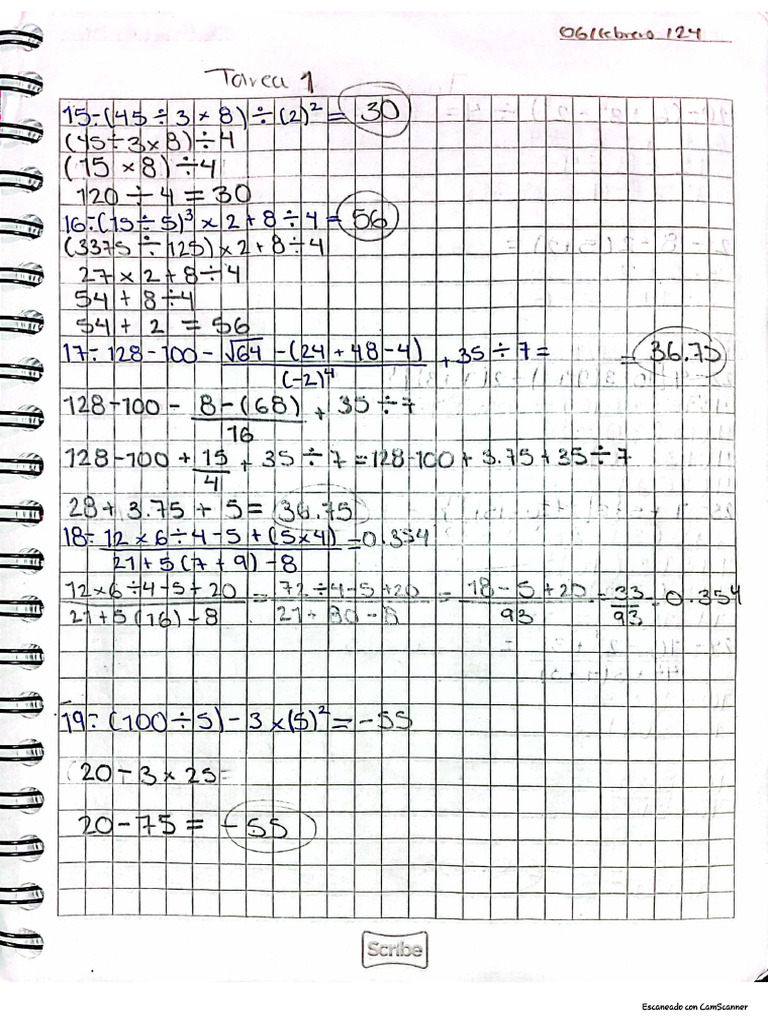 06/febrero /24
Tarea 1
15-(45÷3×8)÷(2)²= 30
(45÷3×8)÷4
(15 ×8)÷4
120 ÷ 4 = 30
16÷(15÷5)³×2+8÷4= 56
(3375÷125)×2+8÷4
27×2+8÷4
54+8÷4
54+2 = 56
17÷128-100-√64-(24+48-4)/(-2)⁴+35÷7= = 36.75
128-100-8-(68)/16+35÷7
128-100+15/4+35÷7=128-100+3.75+35÷7
28+3.75+5= 36.75
18÷12×6÷4-5+(5×4)/21+5(7+9)-8=0.354
12×6÷4-5+20/21+5(16)-8=72÷4-5+20/21+80-8=18-5+20/93=33/93=0.354
19÷(100÷5)-3×(5)²=-55
(20-3×25=
20-75= -55
Scribe
Escaneado con CamScanner